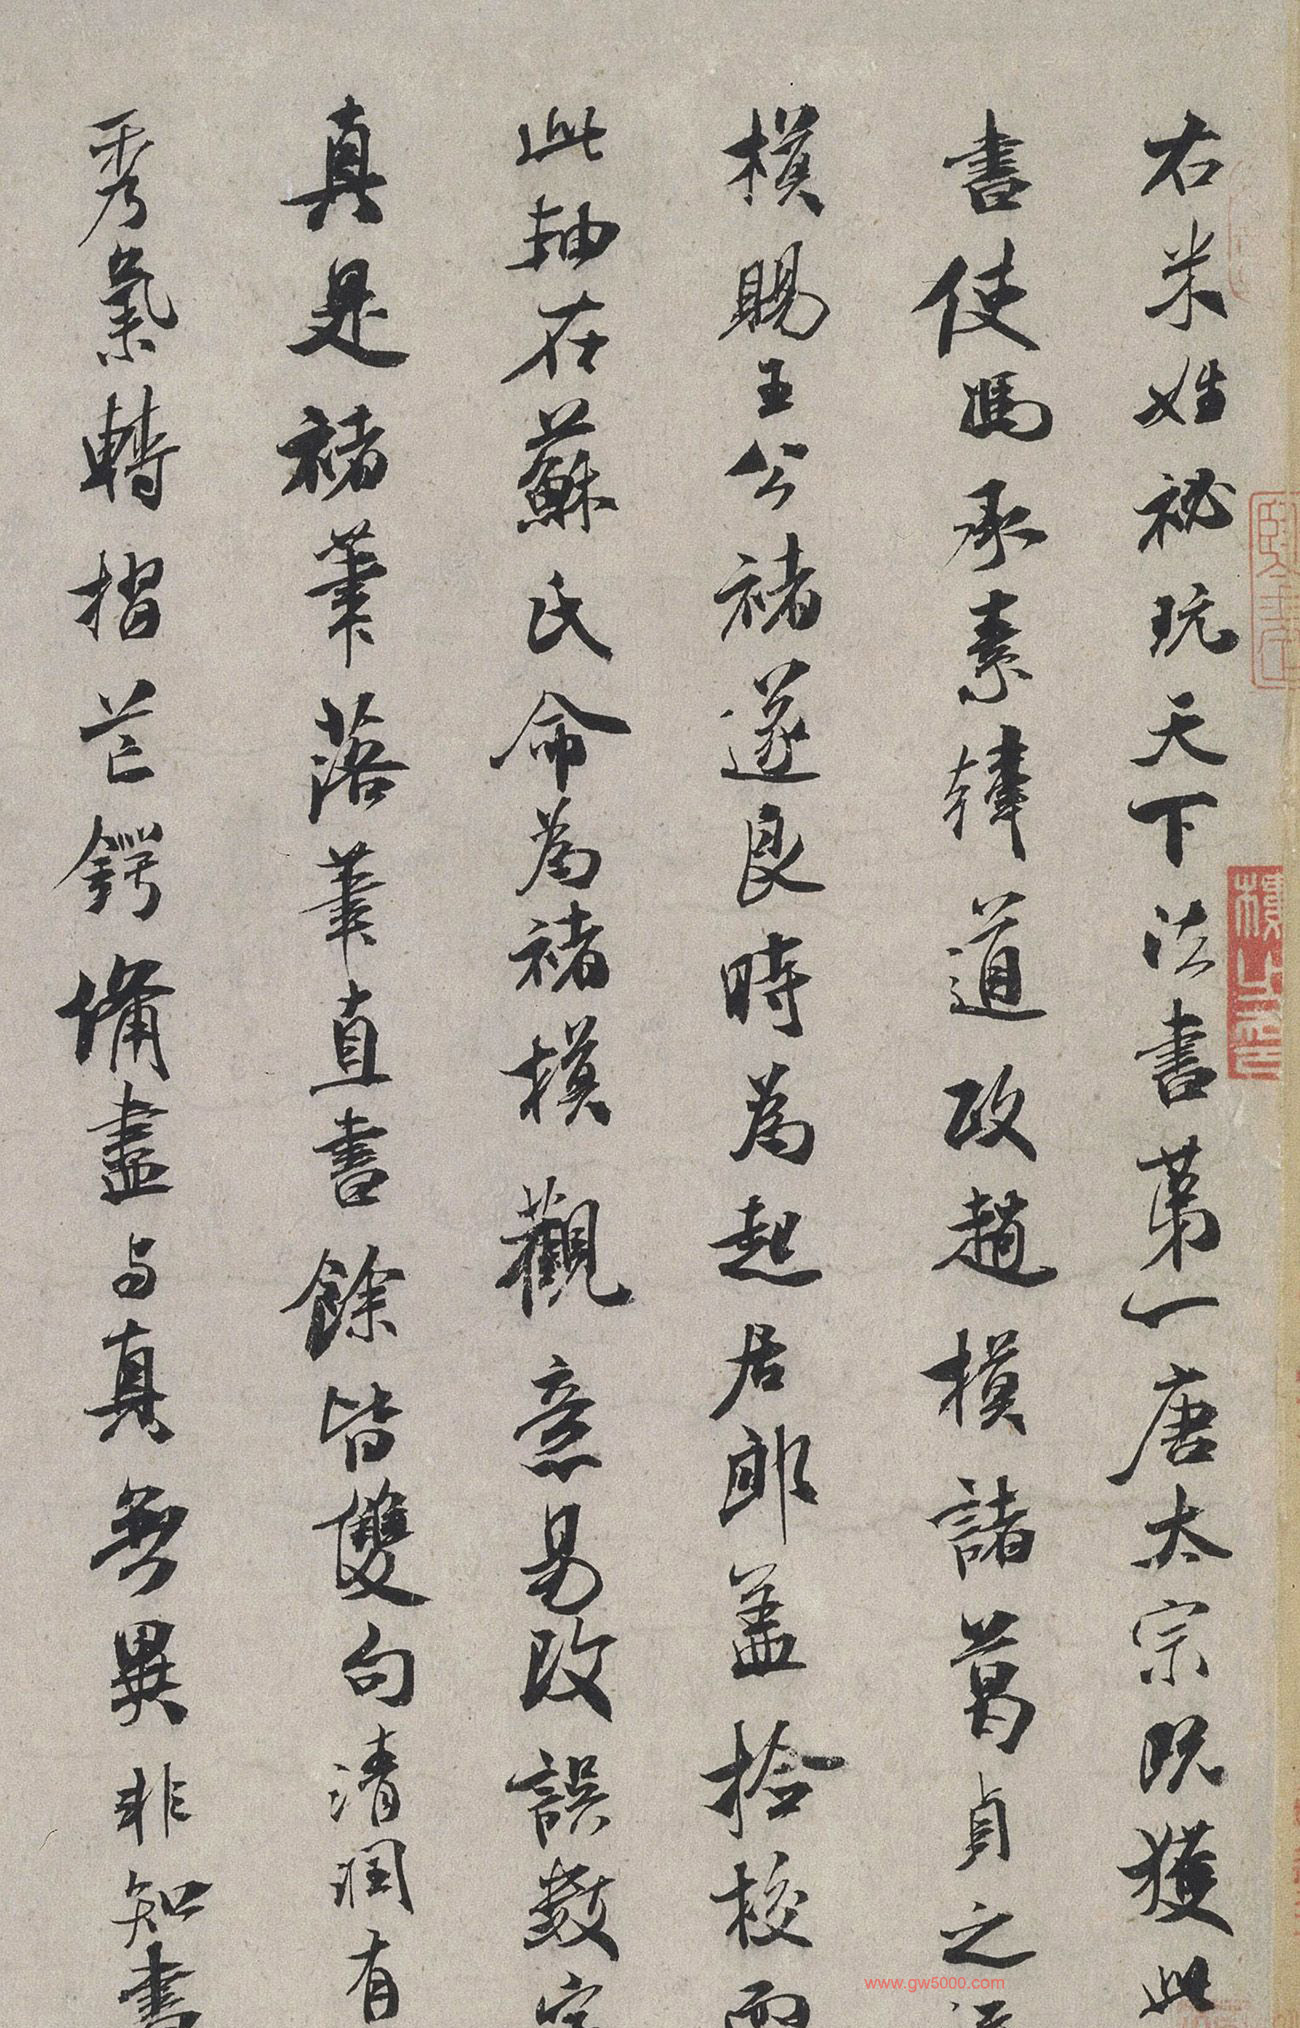 右米姓祕玩天下法書第一唐太宗既獲此
書使馮承素韓道政趙模諸葛貞之
模賜王公褚遂良時為起居郎蓋撿校而
此軸在蘇氏命為褚模觀意易改誤數字
真是褚筆落筆直書餘皆雙句清潤有
秀氣轉摺芒鍔備盡与真無異非知書
www.gw5000.com